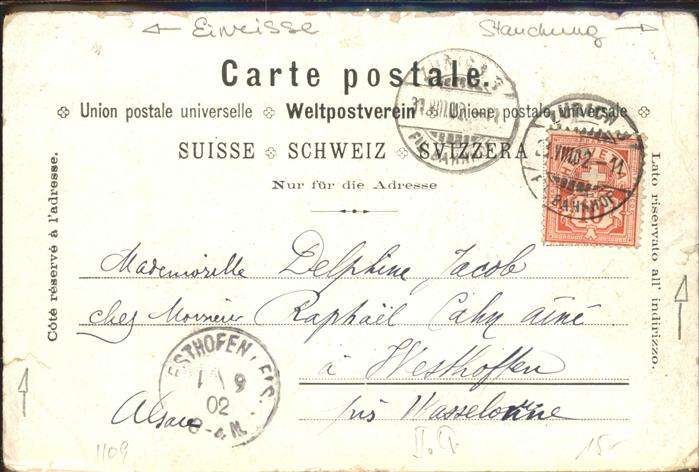 Einrisse Stauchung
Carte postale.
Union postale universelle Weltpostverein Unione postale universale
SUISSE SCHWEIZ SVIZZERA
Nur für die Adresse
Côté réservé à l'adresse.
Lato riservato all' indirizzo.
ZÜRICH
BAHNHOF
10
Mademoiselle Delphine Jacob
chez Monsieur Raphaël Cahn aîné
à Westhoffen
près Wasselonne
Alsace
WESTHOFEN (ELS.)
1 9
02
8-9 N.
1109
II. A.
15.-